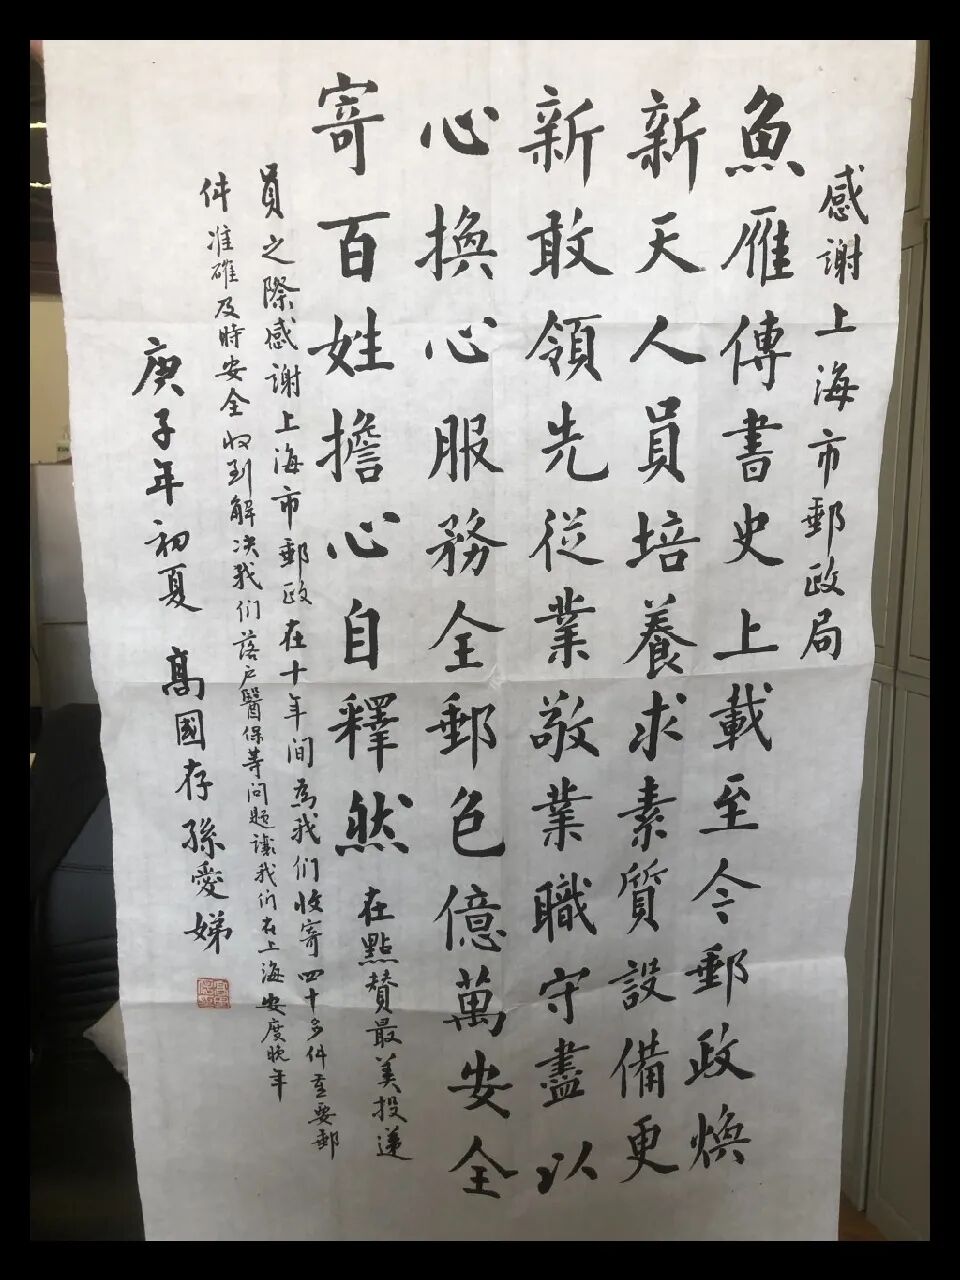 感謝上海市郵政局
魚雁傳書史上載至今郵政煥
新天人員培養求素質設備更
新敢領先從業敬業職守盡以
心換心服務全郵色億萬安全
寄百姓擔心自釋然在點贊最美投遞
員之際感謝上海市郵政在十年間為我们收寄四十多件重要郵
件准確及時安全收到解决我们落户醫保等问题讓我们在上海安度晚年
庚子年初夏 高國存 孫愛娣